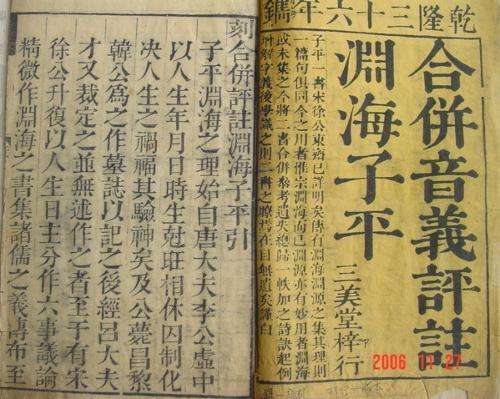 乾隆三十六年鐫
合併音義評註
淵海子平
三美堂梓行
子平一書宋徐公東齋已詳明矣傳有淵海淵源之集其理則
一篇句俱同今之用者惟宗淵海而已淵源亦有妙用者淵海
或未集之今將二書合併參考遺失總歸一帙加之詩訣起例
解字義後學識之則書之瞭然在目無遺矣謹白
2006 11 27
刻合併評註淵海子平引
子平淵海之理始自唐大夫李公虛中
以人生年月日時生尅旺相休囚制化
決人生之禍福其驗神矣及公薨昌黎
韓公為之作墓誌以記之後經呂大夫
才又裁定之並無述作之者至于有宋
徐公升復以人生日主分作六事議論
精微作淵海之書集諸儒之義傳布至